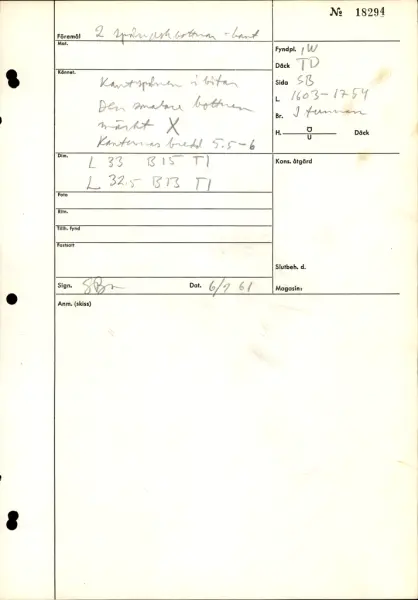 № 18294
Föremål 2 spånaskbottnar + kant
Mat.
Fyndpl. IW
Däck TD
Sida SB
L. 1603-1754
Br. I tunnan
H. Ö U Däck
Kännet.
Kantspånen i bitar
Den smalare bottnen
märkt X
Kanternas bredd 5.5-6
Dim.
L 33 B 15 T1
L 32.5 B 13 T1
Kons. åtgärd
Foto
Ritn.
Tillh. fynd
Fastsatt
Slutbeh. d.
Sign. Dat. 6/9 61
Magasin:
Anm. (skiss)